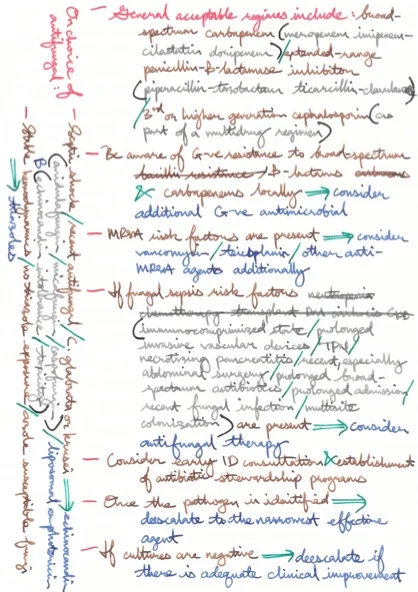 — General acceptable regimes include: broad-
spectrum carbapenem (meropenem imipenem-
cilastatin doripenem) / extended-range
penicillin-β-lactamase inhibitor
(piperacillin-tazobactam ticarcillin-clavulanate)
/ 3rd or higher generation cephalosporin (as
part of a multidrug regimen)
— Be aware of G-ve resistance to broad-spectrum
bacilli resistance / β-lactams
& carbapenems locally ⇒ consider
additional G-ve antimicrobial
— MRSA risk factors are present ⇒ consider
vancomycin / teicoplanin / other anti-
MRSA agents additionally
— If fungal sepsis risk factors neutropenia
chemotherapy transplant DM
(immunocompromized state / prolonged
invasive vascular devices / TPN /
necrotizing pancreatitis / recent, especially
abdominal surgery / prolonged broad-
spectrum antibiotics / prolonged admission /
recent fungal infection / multisite
colonization) are present ⇒ consider
antifungal therapy
— Consider early ID consultation & establishment
of antibiotic stewardship programs
— Once the pathogen is identified ⇒
deescalate to the narrowest effective
agent
— If cultures are negative ⇒ deescalate if
there is adequate clinical improvement
On choice of
antifungal:
— Septic shock / recent antifungal / C glabrata or krusei ⇒ echinocandin
/ liposomal amphotericin
B
— Stable hemodynamics / no triazole exposure / azole susceptible fungi
⇒ triazoles